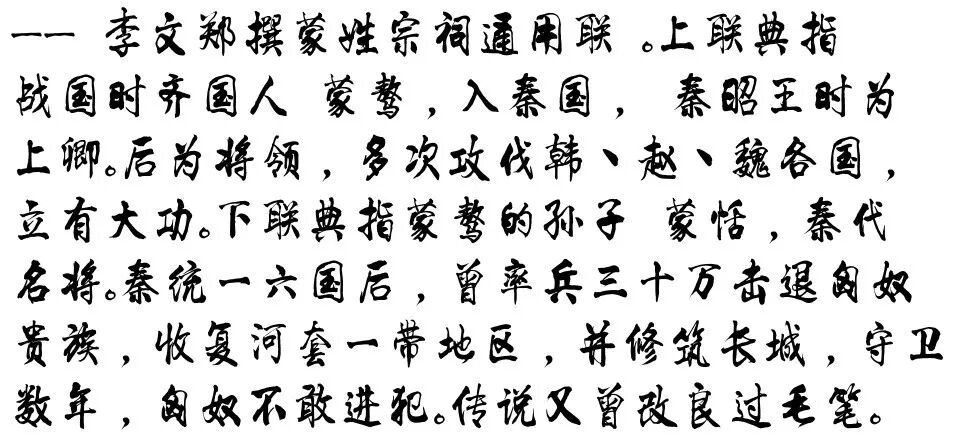 —— 李文郑撰蒙姓宗祠通用联 。上联典指
战国时齐国人 蒙骜，入秦国， 秦昭王时为
上卿。后为将领，多次攻伐韩、赵、魏各国，
立有大功。下联典指蒙骜的孙子 蒙恬，秦代
名将。秦统一六国后，曾率兵三十万击退匈奴
贵族，收复河套一带地区，并修筑长城，守卫
数年，匈奴不敢进犯。传说又曾改良过毛笔。